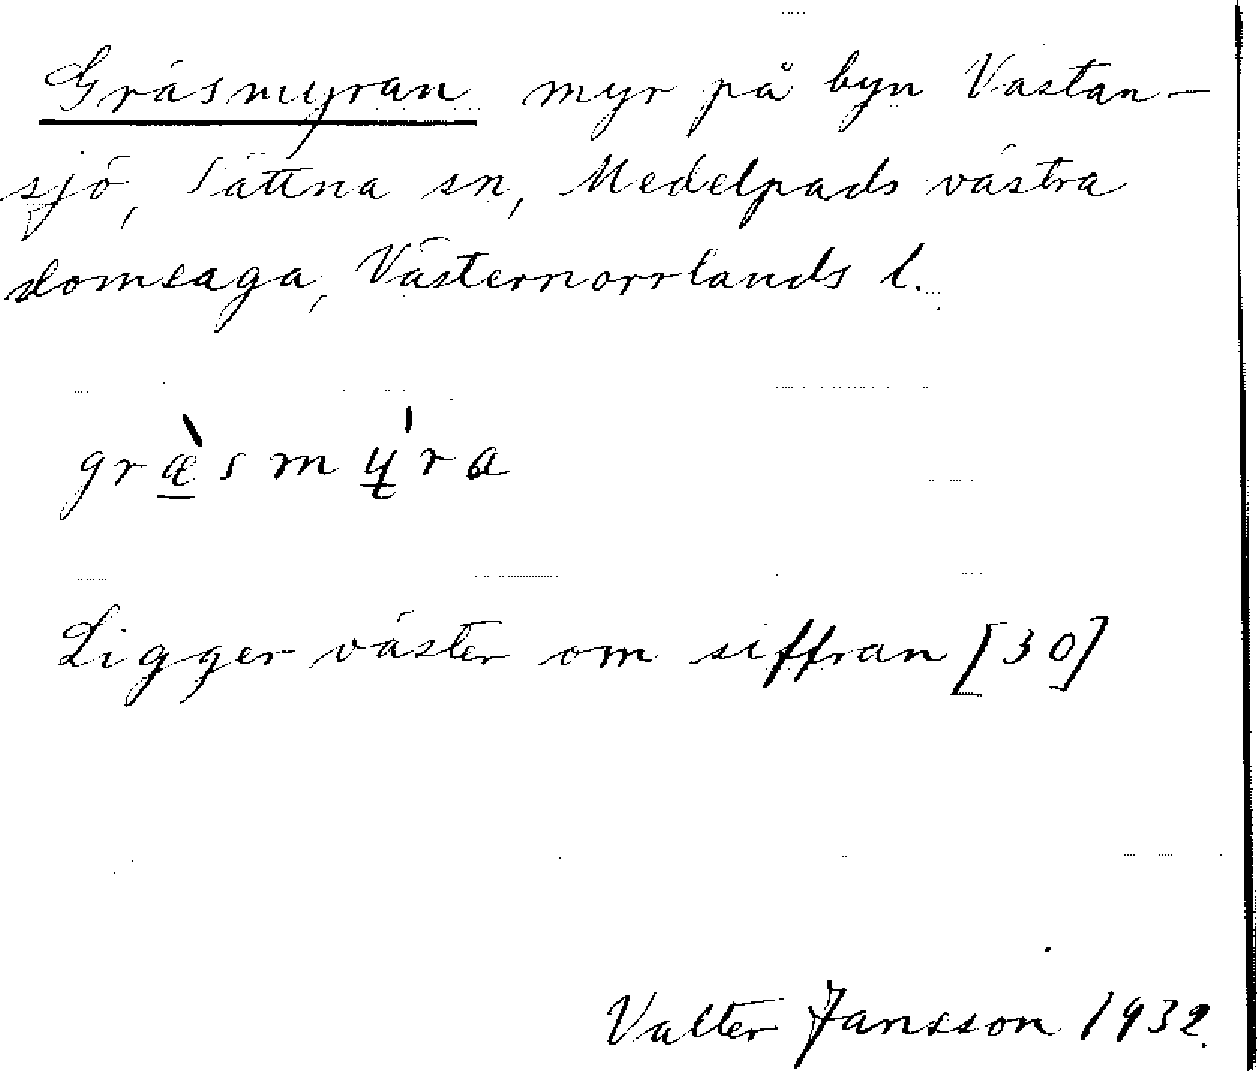 Gräsmyran myr på byn Västan-
sjö, Sättna sn, Medelpads västra
domsaga, Västernorrlands l.
græ̠̀smý̨̠ra
Ligger väster om siffran [30]
Valter Jansson 1932.